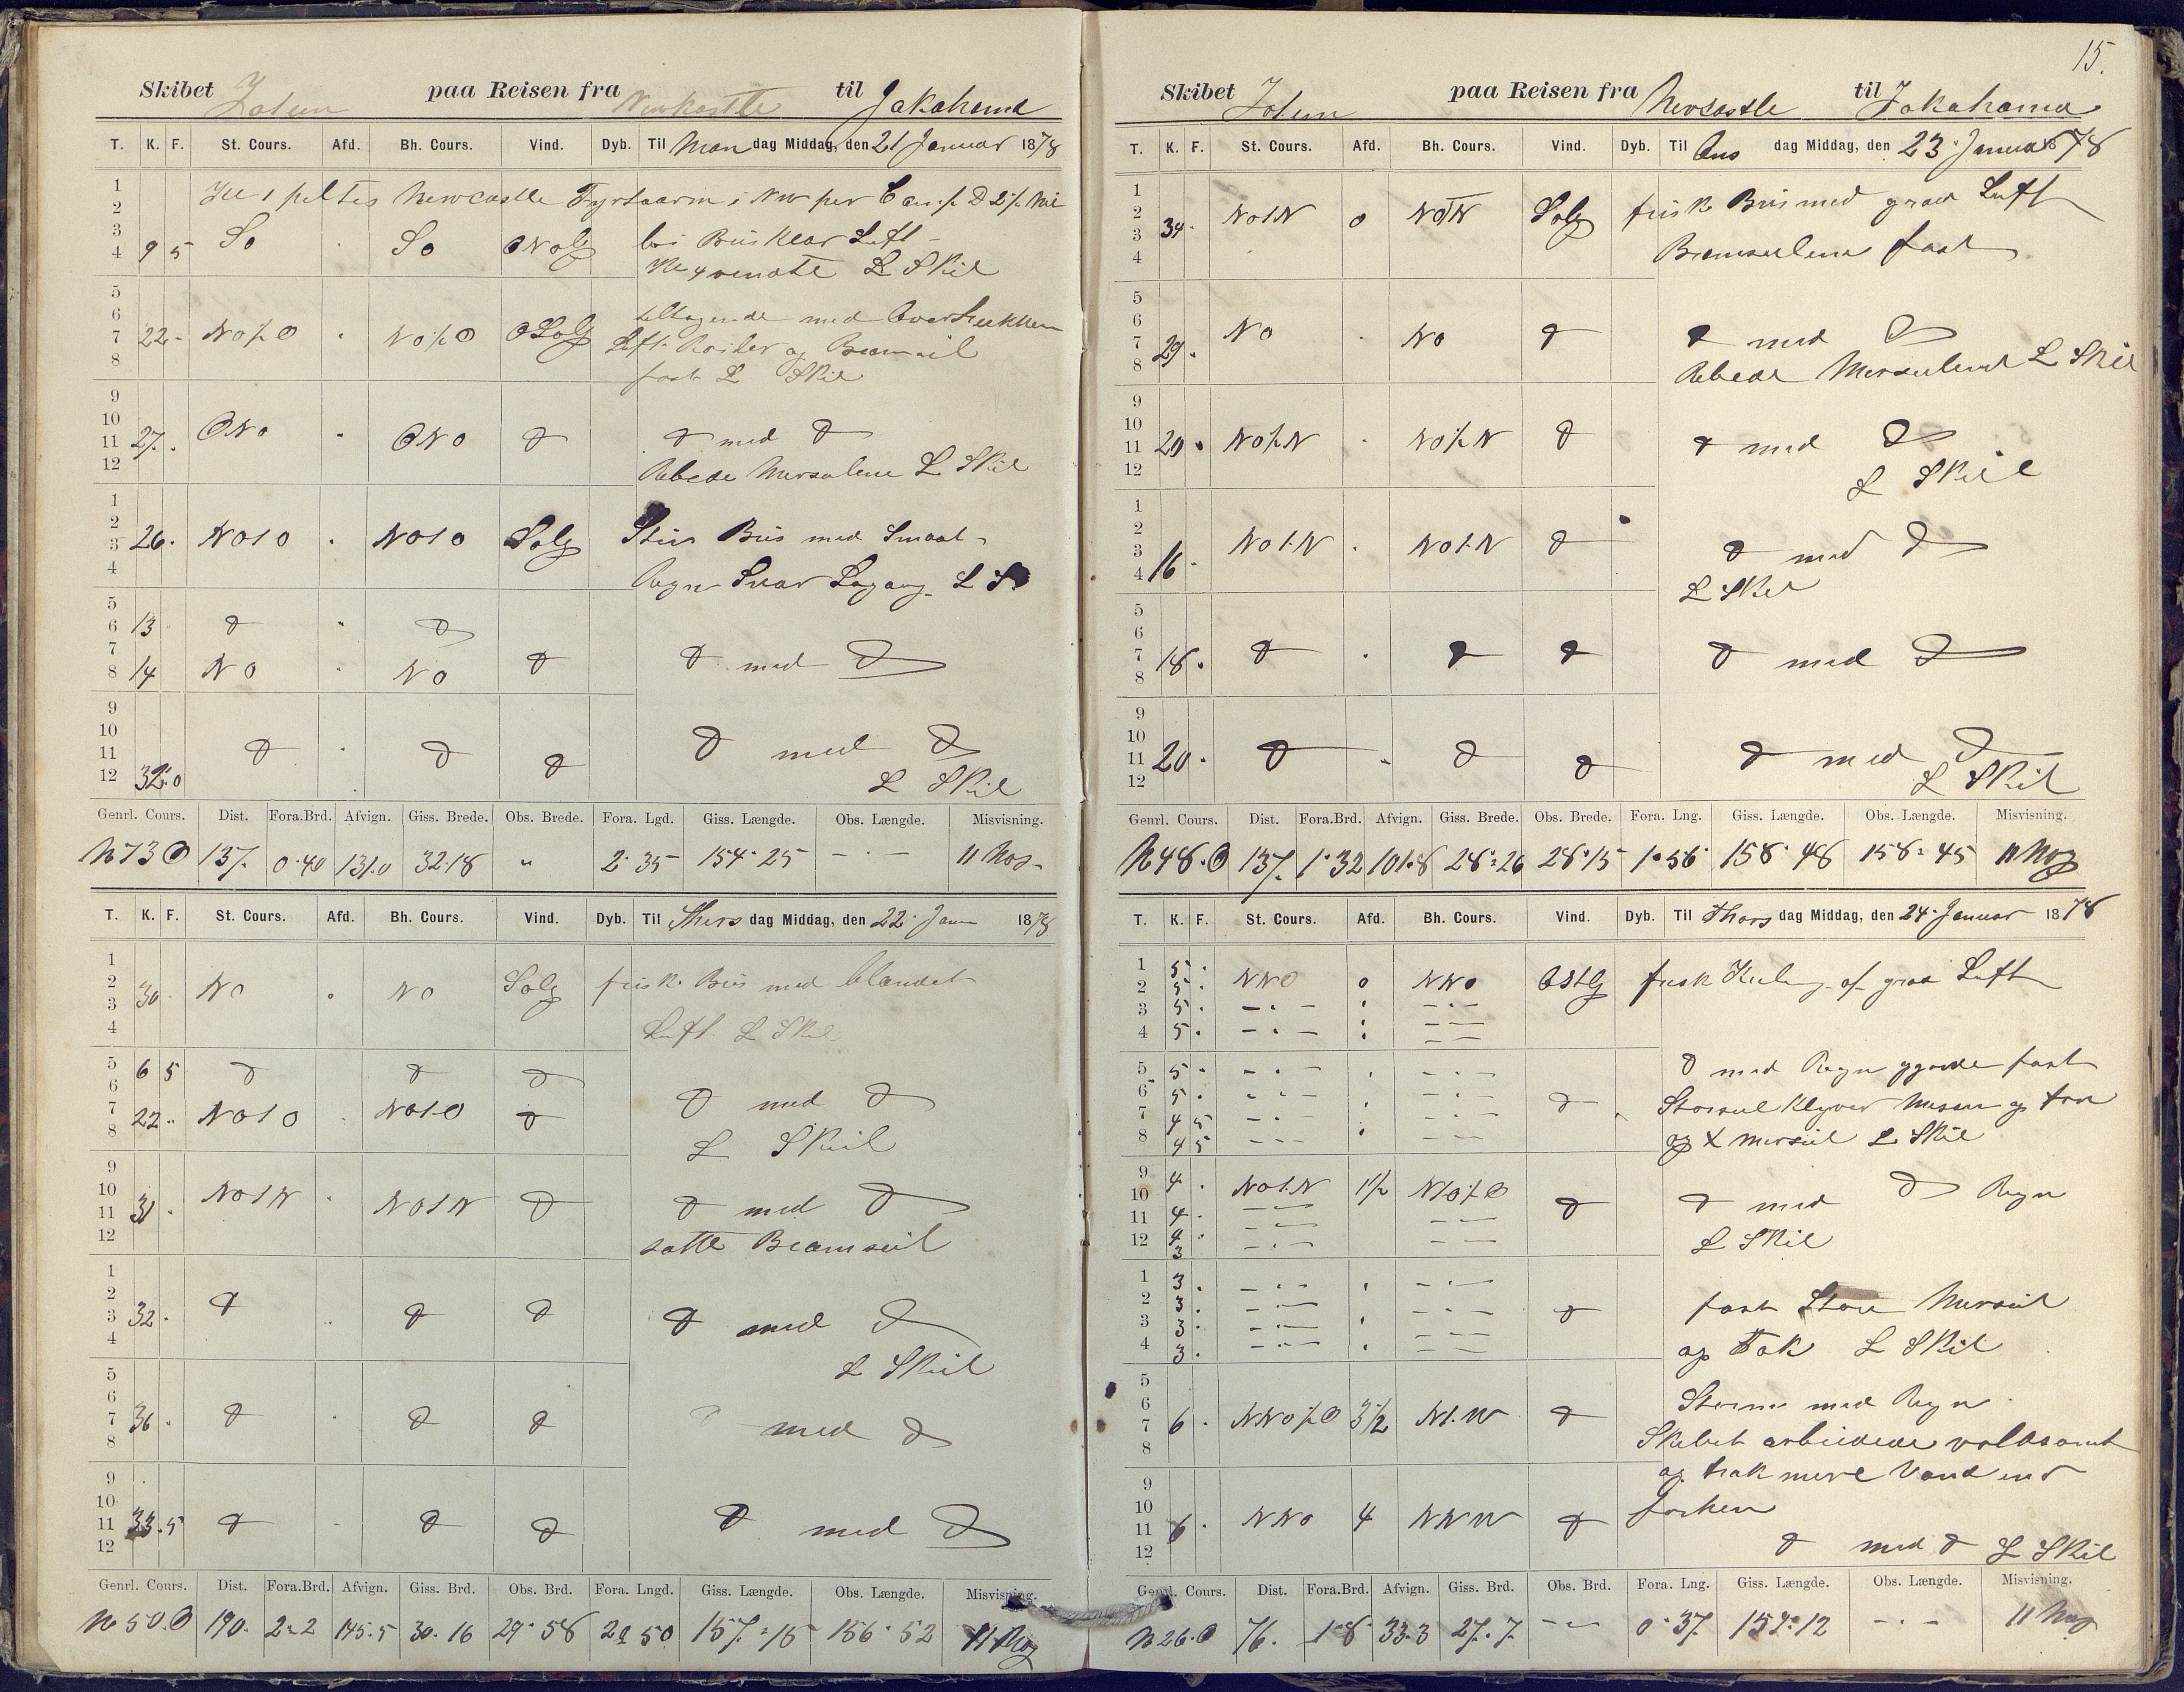 Skibet Jotun paa Reisen fra Newkastle til Jakahama
T. K. F. St. Cours. Afd. Bh. Cours. Vind. Dyb. Til Man dag Middag, den 21 Januar 1878
1
2 Newcastle Fyrtaarn i NW per Comp. D 2½ Mil
3 So So ONOlg Bris Klar Luft
4 9 5 L Skil
5
6 tiltagende med Overtrukken
7 22 NO½O NO½O OSOlg Luft Roiler og Bramseil
8 fast L Skil
9
10
11 27. ONO ONO D D med D
12 Rebede Mersseilene L Skil
1
2
3 26. NO1O NO1O SOlg Stiv Bris med Smaat
4 Regn Svar Søgang L S
5
6 13 D D
7
8 14 NO NO D D med D
9
10
11 D D D D med D
12 32.0 L Skil
Genrl. Cours. Dist. Fora.Brd. Afvign. Giss. Brede. Obs. Brede. Fora. Lgd. Giss. Længde. Obs. Længde. Misvisning.
N 73 O 137. 0·40 131.0 32·18 " 2·35 154·25 - · - 11
T. K. F. St. Cours. Afd. Bh. Cours. Vind. Dyb. Til Thirs dag Middag, den 22· Janu 1878
1
2
3 30 NO NO SOlg frisk Bris med blandet
4 Luft L Skil
5 6 5 D D D
6
7 D med D
8 22. NO1O NO1O D L Skil
9
10
11 31. NO1N NO1N D D med D
12 satte Bramseil
1
2
3 32. D D D D med D
4 L Skil
5
6
7 36. D D D D med D
8
9
10
11 33.5 D D D D med D
12
Genrl. Cours. Dist. Fora.Brd. Afvign. Giss. Brd. Obs. Brd. Fora. Lngd. Giss. Længde. Obs. Længde. Misvisning.
N 50.O 190. 2·2 145.5 30·16 29·58 2·50 157·15 156·52 11
15.
Skibet Jotun paa Reisen fra Newcastle til Jokahama
T. K. F. St. Cours. Afd. Bh. Cours. Vind. Dyb. Til Ons dag Middag, den 23· Januar 1878
1
2
3 34. NO1N 0 NO1N SOlg frisk Bris med graa Luft
4 Bramseilene fast
5
6
7 29. NO NO D D med D
8 Rebede Mersseilene L Skil
9
10
11 20. NO½N NO½N D D med D
12 L Skil
1
2
3 NO1.N NO1.N D D med D
4 16 L Skil
5
6
7 18. D D D D med D
8
9
10
11 20. D D D D med D
12 L Skil
Genrl. Cours. Dist. Fora.Brd. Afvign. Giss. Brede. Obs. Brede. Fora. Lng. Giss. Længde. Obs. Længde. Misvisning.
N 48.O 137. 1·32 101.8 28·26 28·15 1·56 158·48 158·45 11
T. K. F. St. Cours. Afd. Bh. Cours. Vind. Dyb. Til Thors dag Middag, den 24· Januar 1878
1 5. NNO 0 NNO OStlg frisk Kuling af graa Luft
2 5. - · -
3 5. - · - - · -
4 5. - · - - -
5 5. - · - - · - D med Regn gjorde fast
6 5. - · - - · - D Storseil Klyver Mesan og for
7 4 5 - · - - · -
8 4 5 - - - - - og X Mersseil L Skil
9 4. NO1.N 1½ N1O½O D D med D Regn
10
11 4. - - - -
12 4 3 - · - - - L Skil
1 3. - · - - · - fast Store Mersseil
2 3. - · - D
3 3. - · - - · - og Fok L Skil
4 3. - · - - -
5
6 Storm med Regn
7 6. NNO½O 3½ N1.W D Skibet arbeidede voldsomt
8 og trak mere Vand end
9
10 forhen
11 6. NNO 4 NNW D
12 D med D L Skil
Genrl. Cours. Dist. Fora.Brd. Afvign. Giss. Brd. Obs. Brd. Fora. Lng. Giss. Længde. Obs. Længde. Misvisning.
N 26.O 76. 1·8 33.3 27·7 - - 0·37 - · - 11